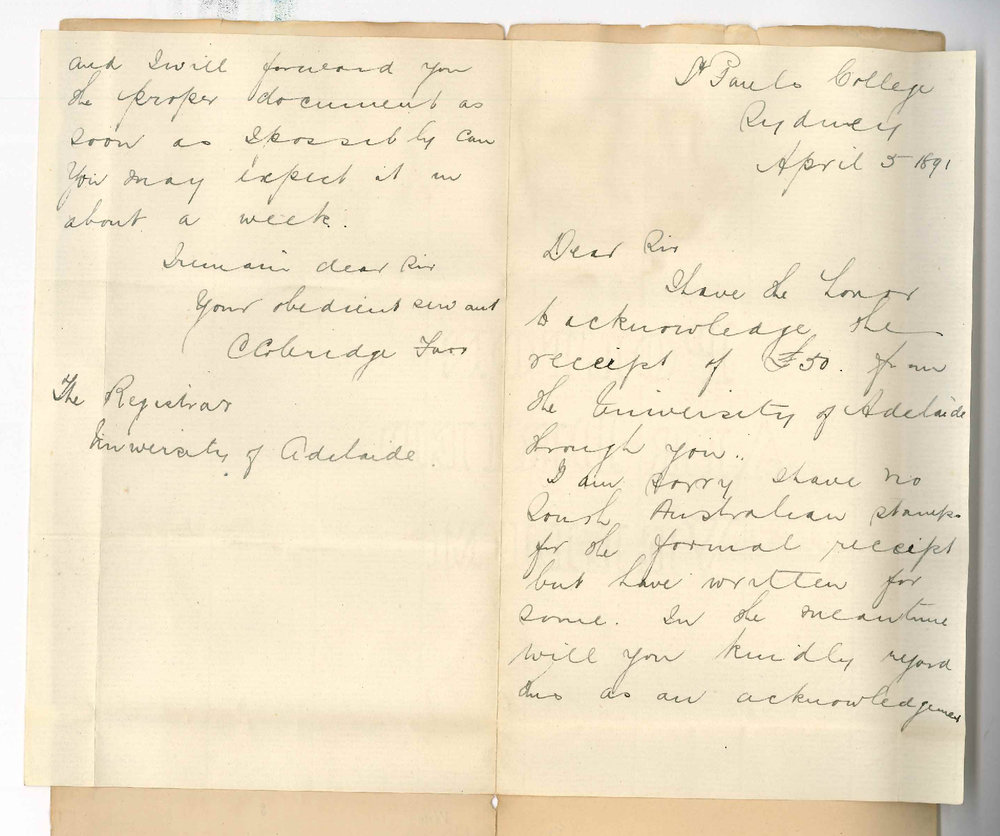 St Pauls College
Sydney
April 5 1891
Dear Sir
I have the honor
to acknowledge the
receipt of £50. from
the University of Adelaide
through you.
I am sorry I have no
South Australian stamps
for the formal receipt
but have written for
some. In the meantime
will you kindly regard
this as an acknowledgement
and I will forward you
the proper document as
soon as I possibly can
You may expect it in
about a week.
I remain dear Sir
Your obedient servant
C Coleridge Farr
The Registrar
University of Adelaide.